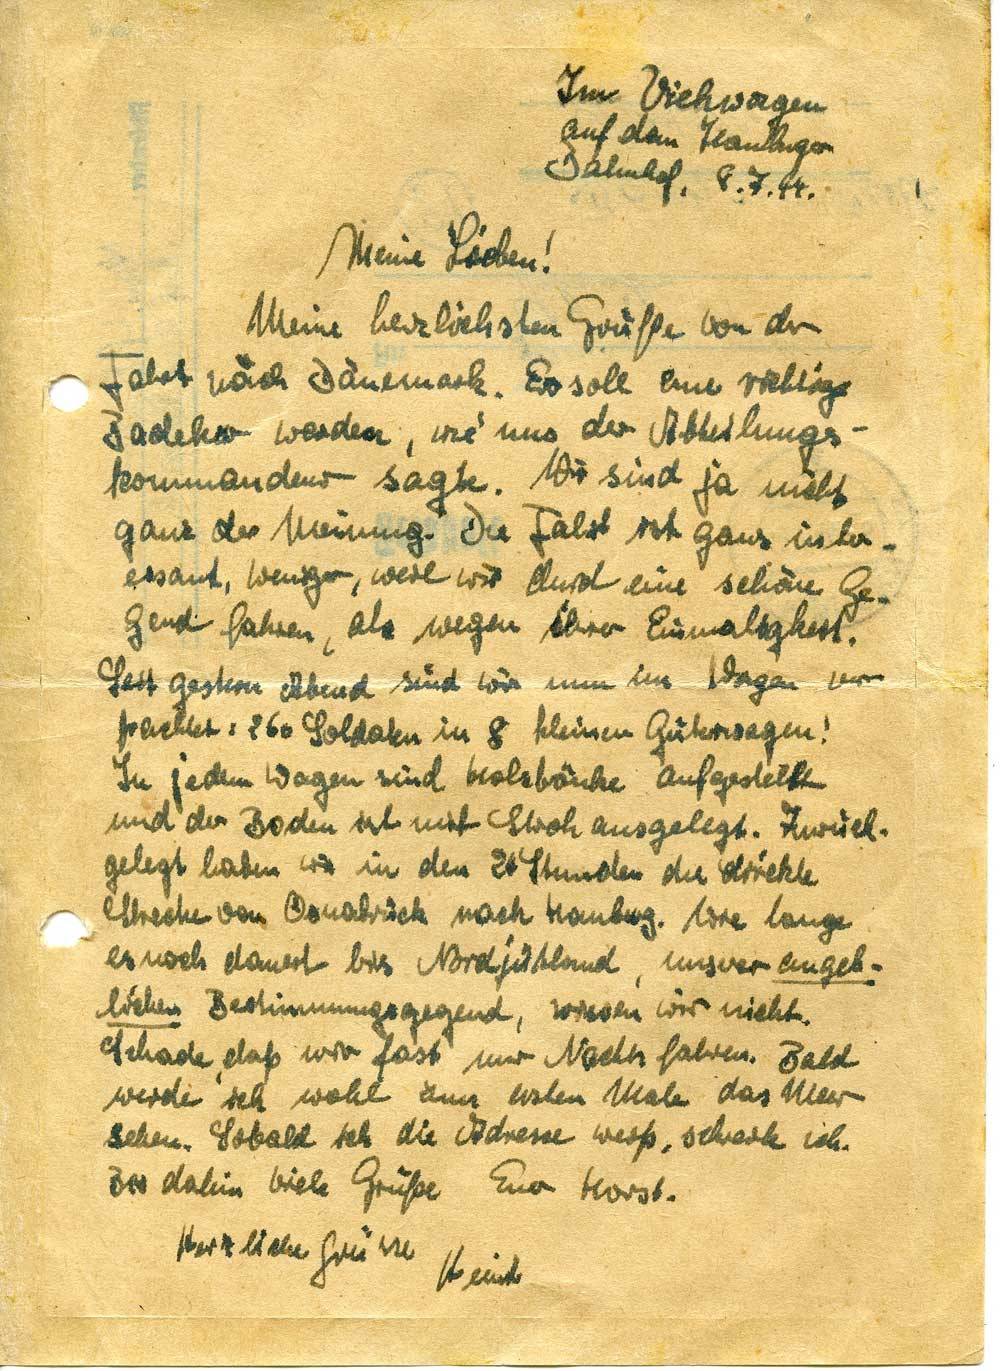 Im Viehwagen
auf dem Hamburger
Bahnhof, 8.7.44.
Meine Lieben!
Meine herzlichsten Grüße von der
Fahrt nach Dänemark. Es soll eine richtige
Badekur werden, wie uns der Abteilungs-
kommandeur sagte. Wir sind ja nicht
ganz der Meinung. Die Fahrt ist ganz inter-
essant, weniger, weil wir durch eine schöne Ge-
gend fahren, als wegen ihrer Einmaligkeit.
Seit gestern Abend sind wir nun im Wagen ver
frachtet: 260 Soldaten in 8 kleinen Güterwagen!
In jedem Wagen sind Holzbänke aufgestellt
und der Boden ist mit Stroh ausgelegt. Zurück-
gelegt haben wir in den 24 Stunden die direkte
Strecke von Osnabrück nach Hamburg. Wie lange
es noch dauert bis Nordjütland, unserer angeb-
lichen Bestimmungsgegend, wissen wir nicht.
Schade, daß wir fast nur Nachts fahren. Bald
werde ich wohl zum ersten Male das Meer
sehen. Sobald ich die Adresse weiß, schreib ich.
Bis dahin viele Grüße Euer Horst.
Herzliche Grüsse